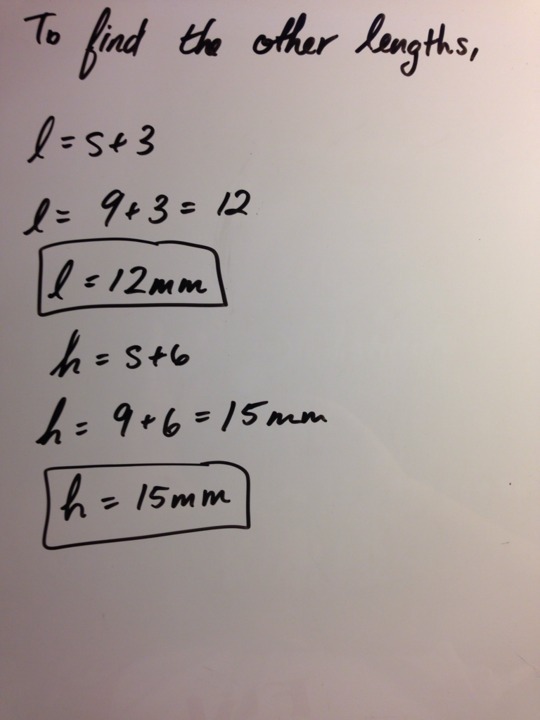 To find the other lengths,
l = s+3
l = 9+3 = 12
l = 12mm
h = s+6
h = 9+6 = 15mm
h = 15mm